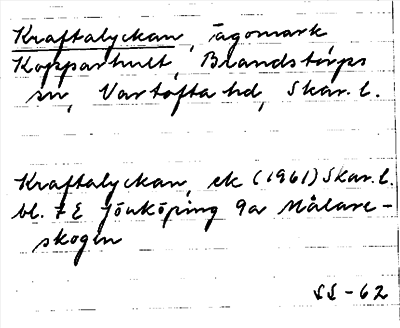 Kraftalyckan, ägomark
Kopparhult, Brandstorps
sn, Vartofta hd, Skar. l.
Kraftalyckan, ek (1961) Skar. l.
bl. 7 E Jönköping 9a Målare-
skogen
SS-62